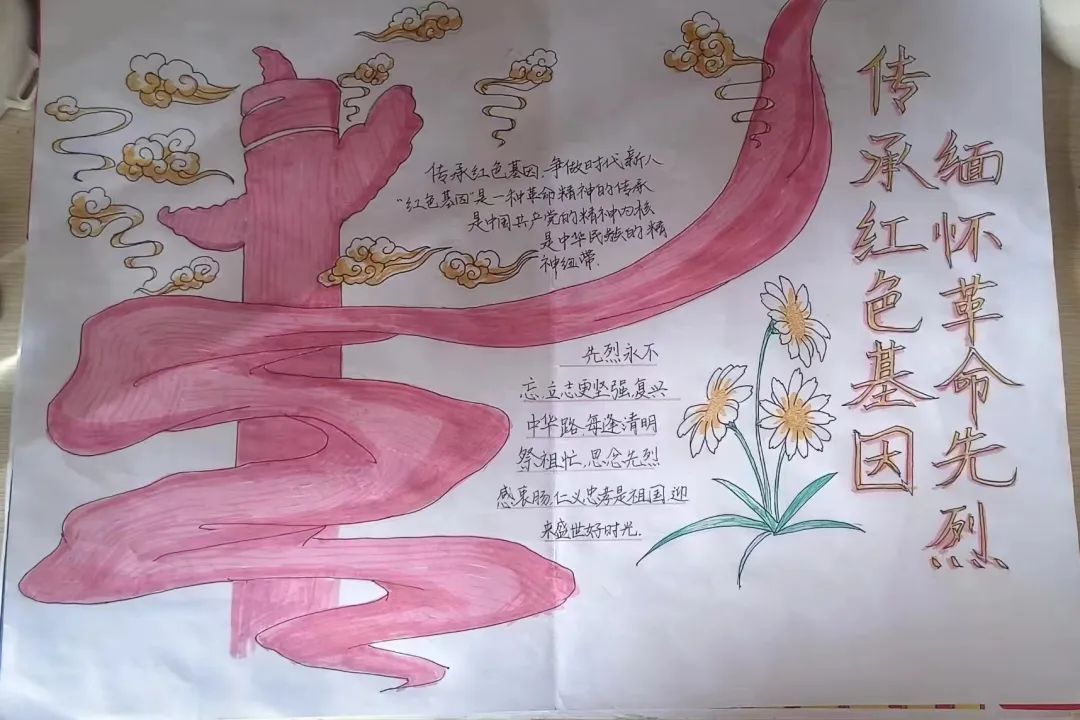 缅怀革命先烈
传承红色基因
传承红色基因,争做时代新人
“红色基因”是一种革命精神的传承
是中国共产党的精神内核
是中华民族的精
神纽带.
先烈永不
忘,立志更坚强,复兴
中华路,每逢清明
祭祖忙,思念先烈
感衷肠,仁义忠孝是祖国迎
来盛世好时光.